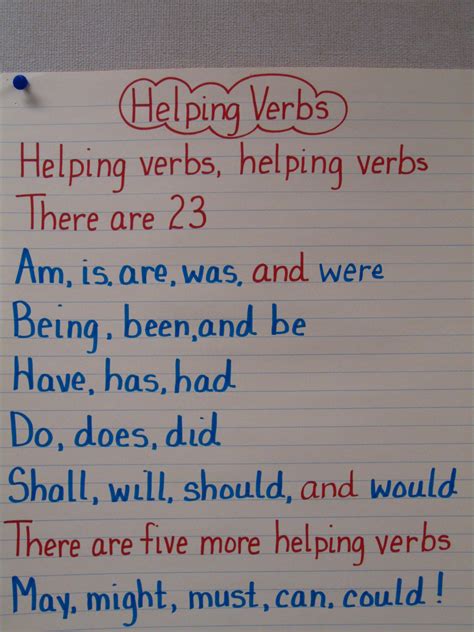 Helping Verbs
Helping verbs, helping verbs
There are 23
Am, is, are, was, and were
Being, been, and be
Have, has, had
Do, does, did
Shall, will, should, and would
There are five more helping verbs
May, might, must, can, could!